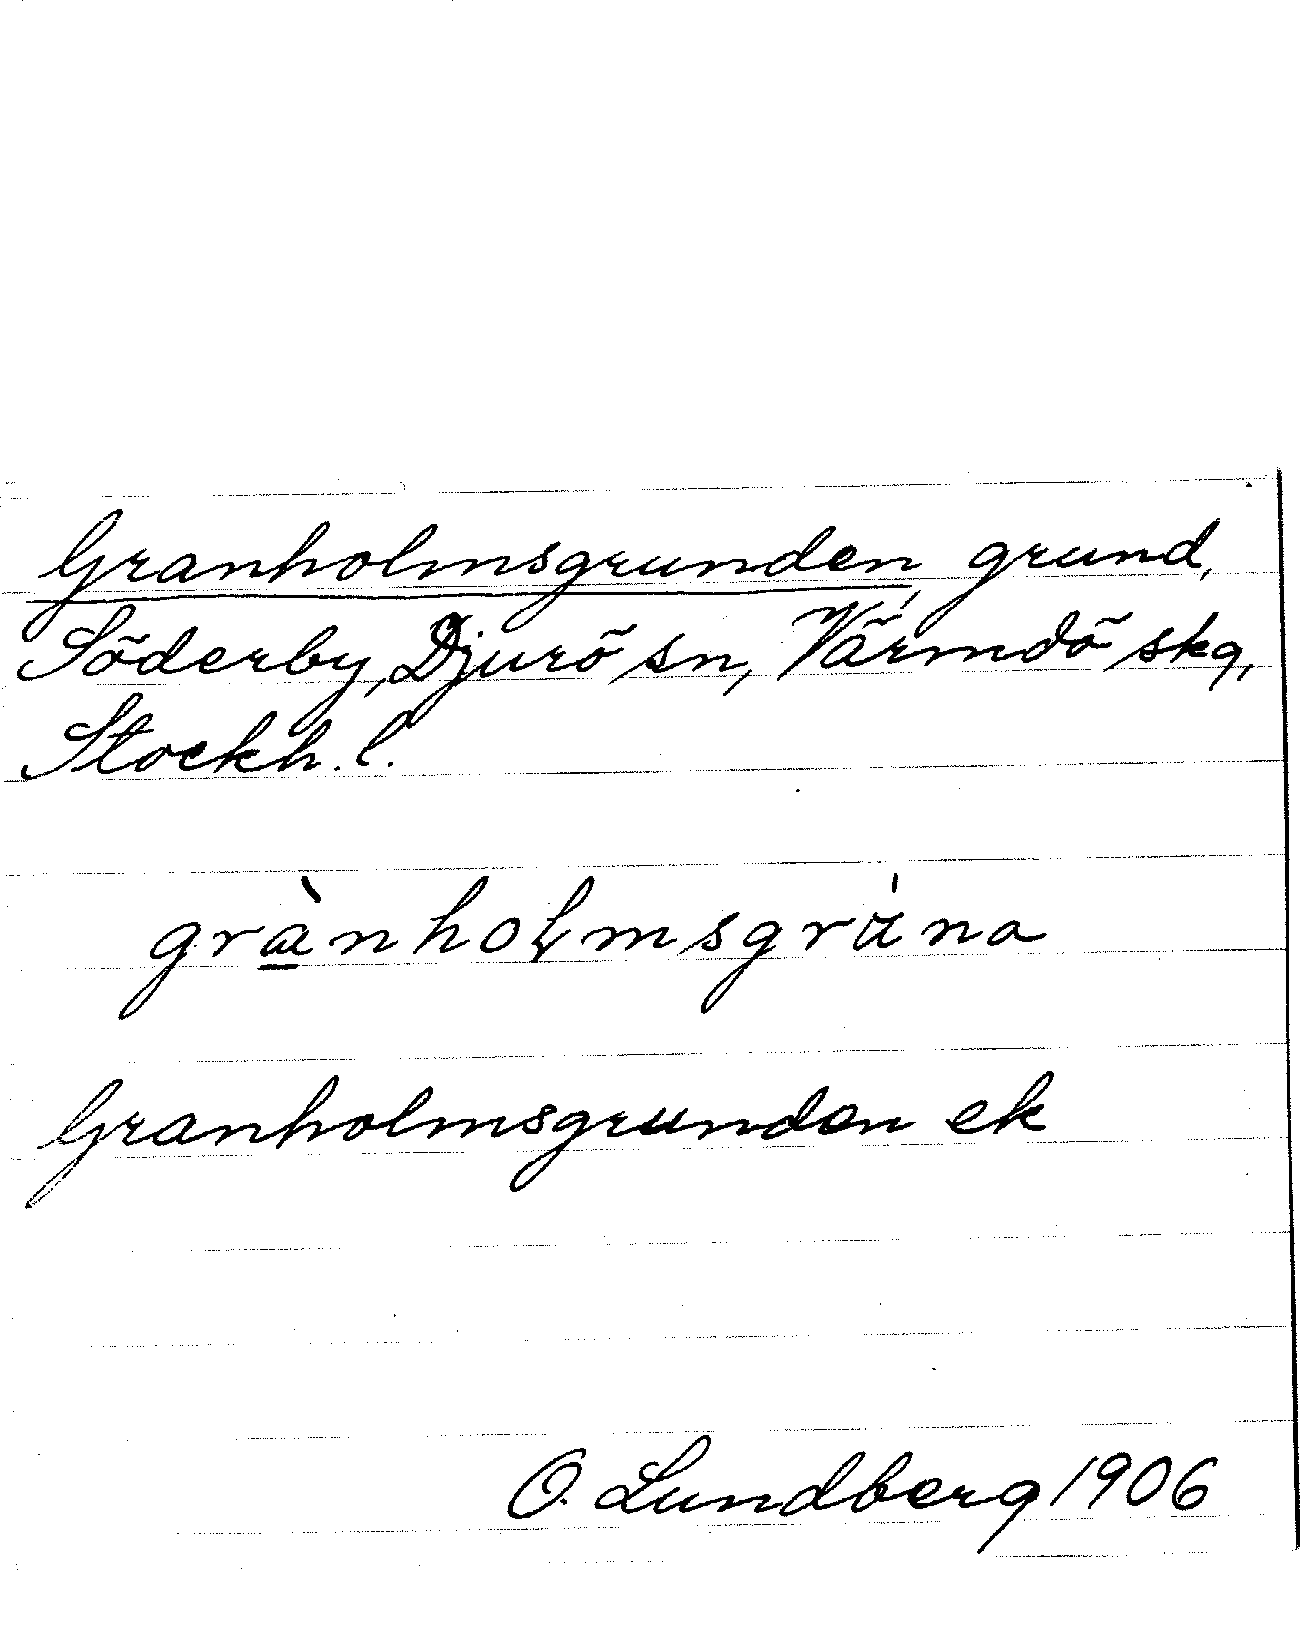 Granholmsgrunden, grund,
Söderby, Djurö sn, Värmdö skg,
Stockh. l.
grànholmsgrána
Granholmsgrunden ek
O. Lundberg 1906